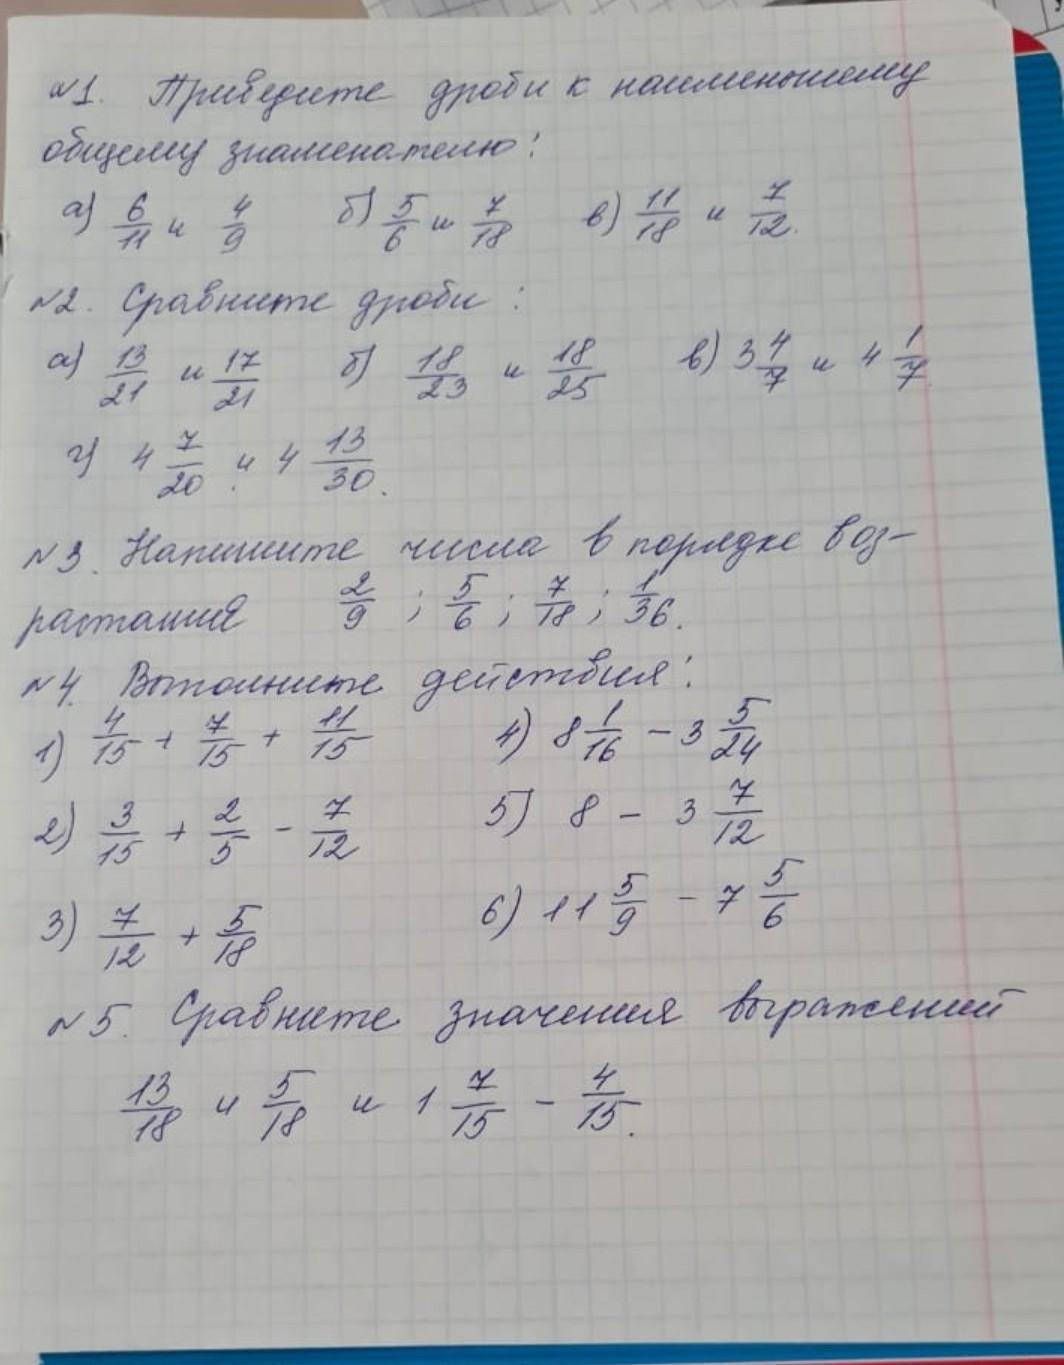 №1. Приведите дроби к наименьшему
общему знаменателю:
а) 6/11 и 4/9 б) 5/6 и 7/18 в) 11/18 и 7/12.
№2. Сравните дроби:
а) 13/21 и 17/21 б) 18/23 и 18/25 в) 3 4/7 и 4 1/7
г) 4 7/20 и 4 13/30.
№3. Напишите числа в порядке воз-
растания 2/9; 5/6; 7/18; 1/36.
№4. Выполните действия:
1) 4/15 + 7/15 + 11/15 4) 8 1/16 - 3 5/24
2) 3/15 + 2/5 - 7/12 5) 8 - 3 7/12
3) 7/12 + 5/18 6) 11 5/9 - 7 5/6
№5. Сравните значения выражений
13/18 и 5/18 и 1 7/15 - 4/15.